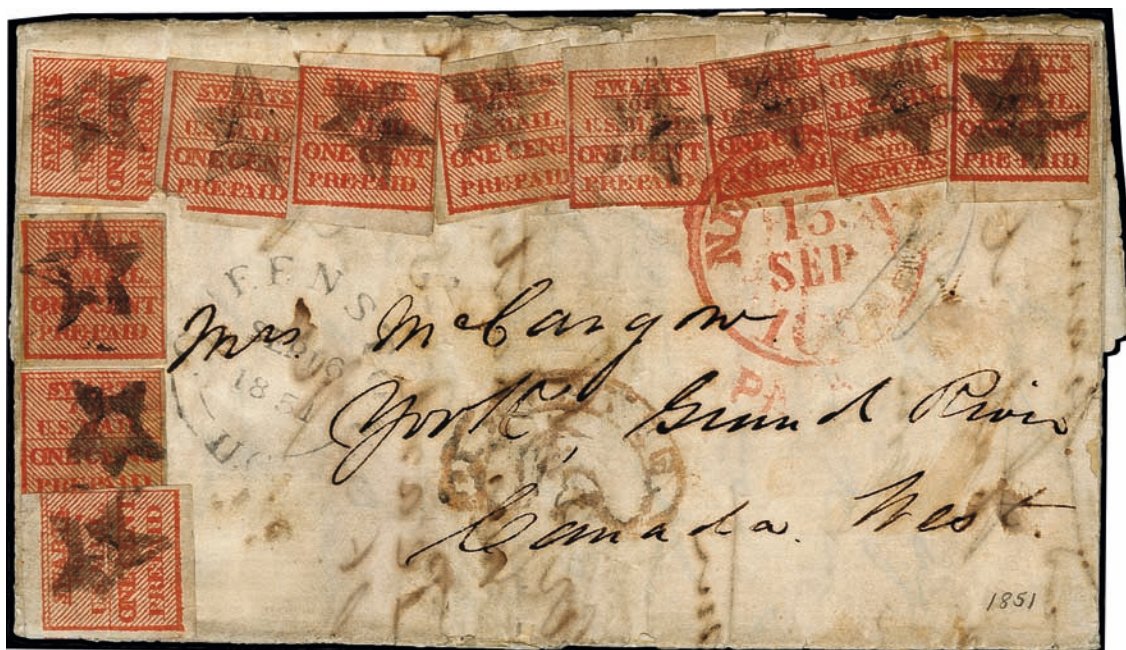 SWARTS
FOR
U.S.MAIL
ONE CENT
PRE-PAID
SWARTS
FOR
U.S.MAIL
ONE CENT
PRE-PAID
SWARTS
U.S.MAIL
ONE CENT
PRE-PAID
SWARTS
FOR
U.S.MAIL,
ONE CENT
PRE-PAID
SWARTS
FOR
U.S.MAIL
ONE CENT
PRE-PAID
SWARTS
FOR
U.S.MAIL
ONE CENT
PRE-PAID
SWARTS
PRE-PAID
SWARTS
U.S.MAIL,
ONE CENT
PRE-PAID
SWARTS
ONE CENT
PRE-PAID
SWARTS
U.S.MAIL
ONE CENT
PRE-PAID
ONE
PRE-PAID
NE
15
SEP
10
PA
QUEENS
1851
Mrs. McCargow
York, Grand River
Canada West.
1851